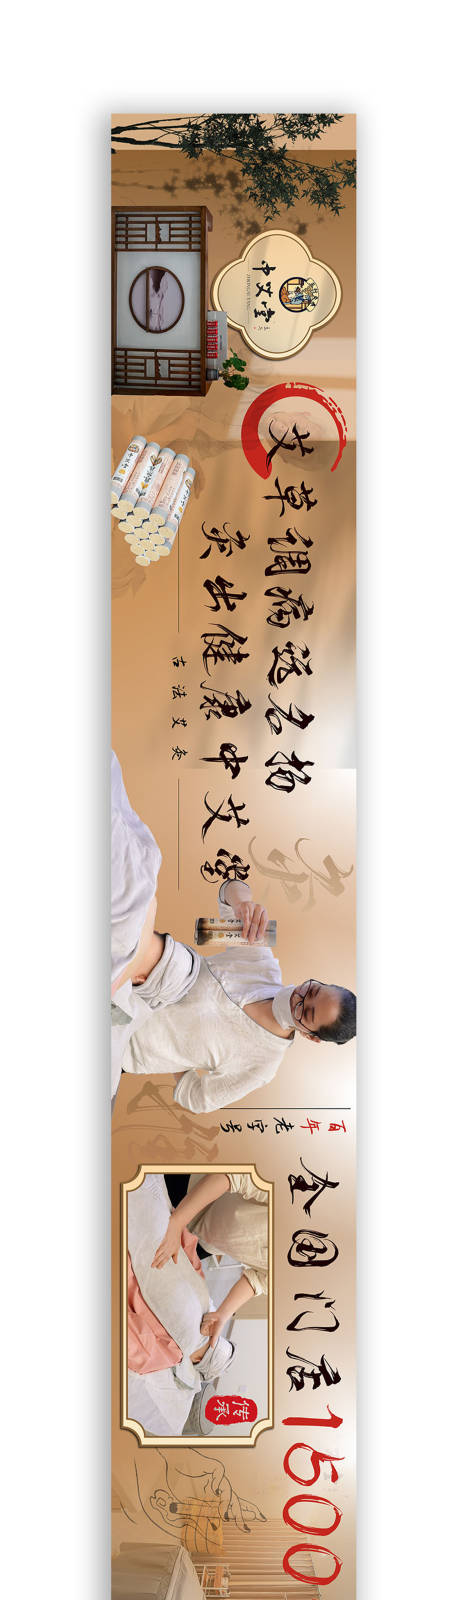 中艾堂
艾草调病远名扬
灸出健康中艾堂
古法艾灸
百年老字号
全国门店1500
传承